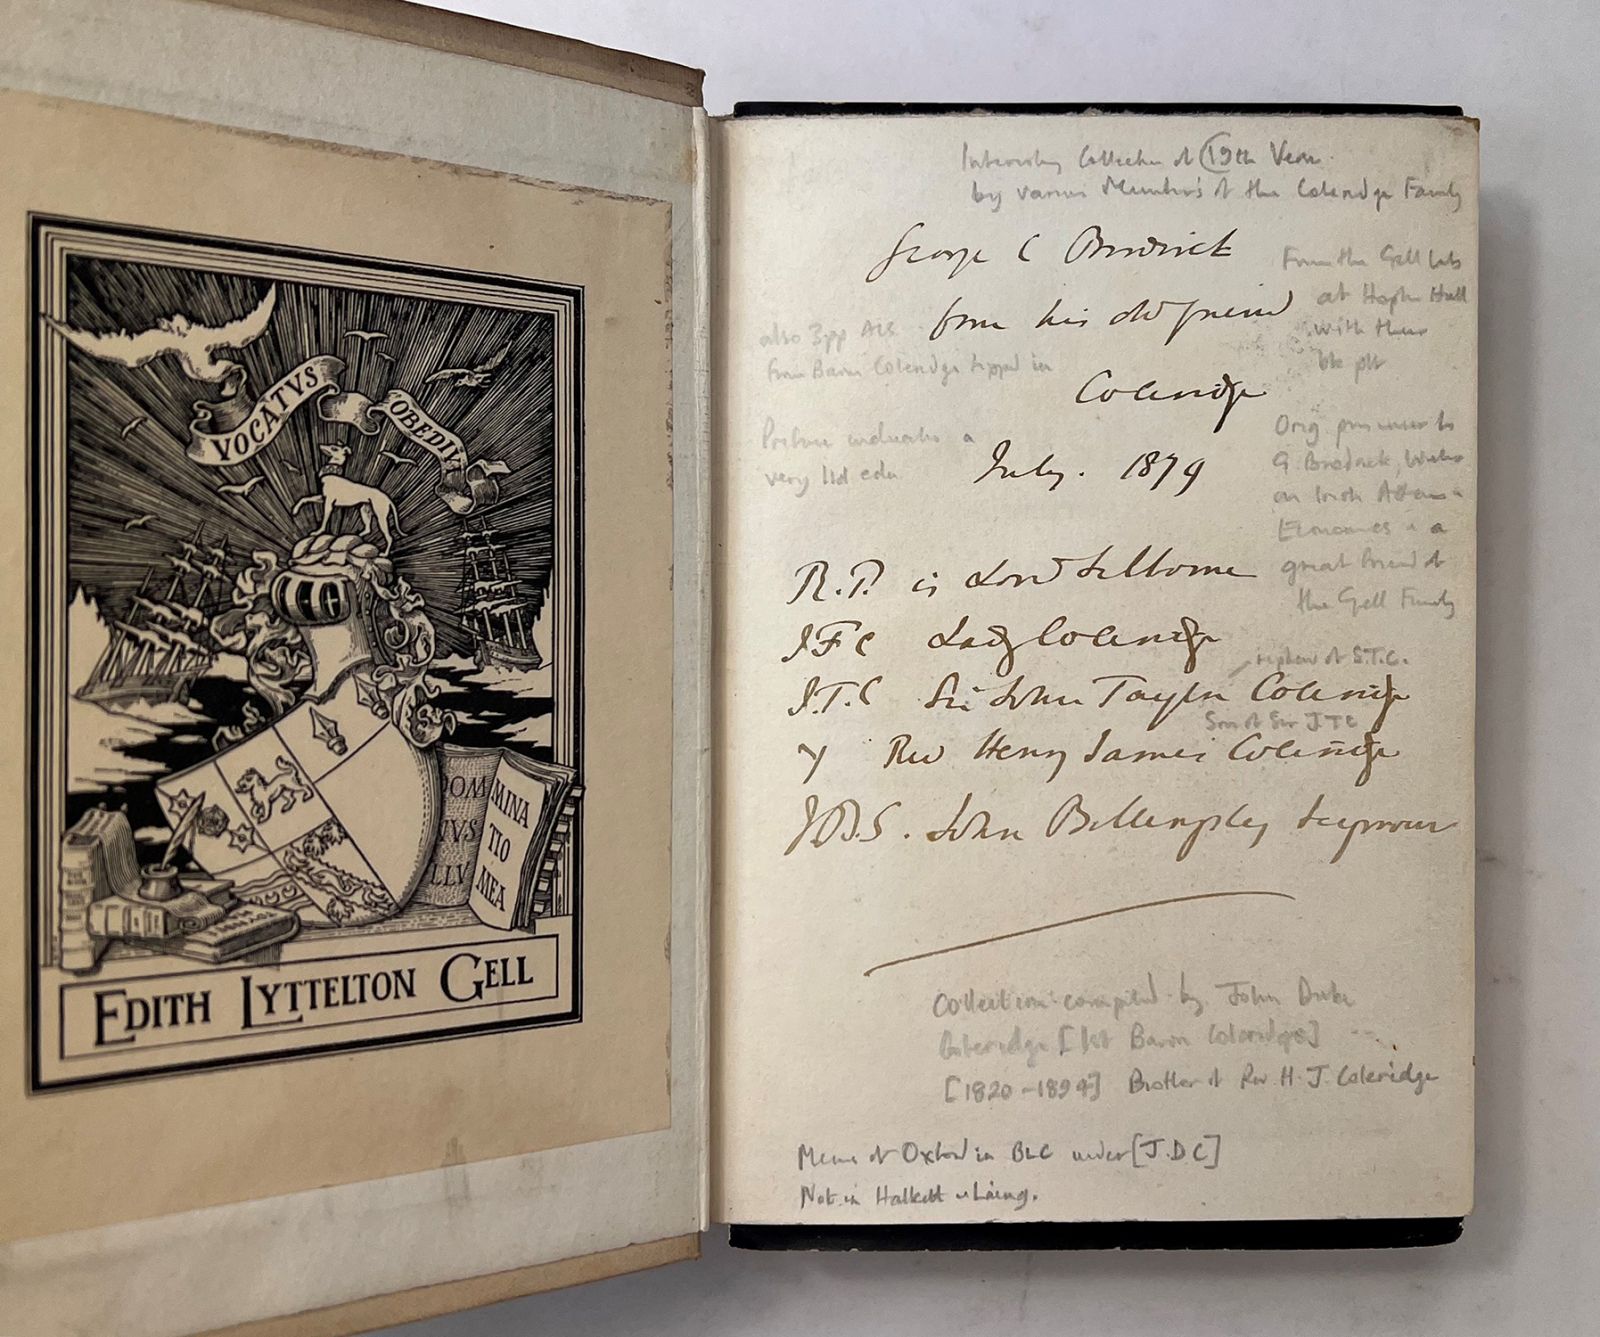 VOCATVS
OBEDIV
DOM
MINA
TIO
MEA
ILLV
EDITH LYTTELTON GELL
Interesting Collection of 19th Verse
by various Members of the Coleridge Family
George C Brodrick
from his old friend
Coleridge
July. 1879
From the Gell
at Hopton Hall
with their
bk plt
also 3pp ALS
from Baron Coleridge tipped in
Preface indicates a
very ltd edn
Orig
G. Brodrick, Writer
on Irish
Economics a
great friend of
the Gell Family
R.P. is Lord Selborne
J F C Lady Coleridge
nephew of S.T.C.
J.T.C Sir John Taylor Coleridge
Son of Sir J T C
Y Rev Henry James Coleridge
J B.S. John Billingsley Seymour
Collection compiled by John Duke
Coleridge [1st Baron Coleridge]
[1820-1894] Brother of Rev H. J. Coleridge
Mems of Oxford in BLC under [J.D.C]
Not in Halkett & Laing.